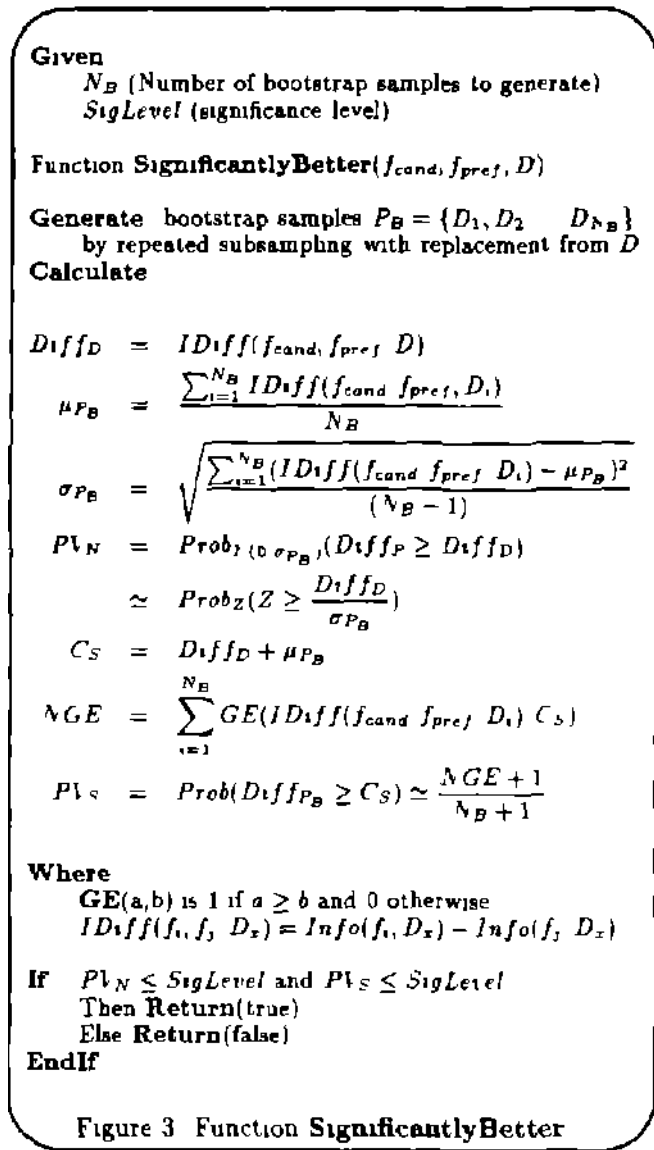 Given
N_B (Number of bootstrap samples to generate)
SigLevel (significance level)
Function SignificantlyBetter(f_cand, f_pref, D)
Generate bootstrap samples P_B = {D_1, D_2 D_{N_B}}
by repeated subsampling with replacement from D
Calculate
Diff_D = IDiff(f_cand, f_pref D)
μ_{P_B} = \frac{\sum_{i=1}^{N_B} IDiff(f_cand f_pref, D_i)}{N_B}
σ_{P_B} = \sqrt{\frac{\sum_{i=1}^{N_B} (IDiff(f_cand f_pref D_i) − μ_{P_B})^2}{(N_B − 1)}}
PV_N = Prob_{(0 σ_{P_B})}(Diff_P ≥ Diff_D)
≃ Prob_Z(Z ≥ \frac{Diff_D}{σ_{P_B}})
C_S = Diff_D + μ_{P_B}
NGE = \sum_{i=1}^{N_B} GE(IDiff(f_cand f_pref D_i) C_S)
PV_S = Prob(Diff_{P_B} ≥ C_S) ≃ \frac{NGE + 1}{N_B + 1}
Where
GE(a,b) is 1 if a ≥ b and 0 otherwise
IDiff(f_i, f_j D_x) = Info(f_i, D_x) − Info(f_j D_x)
If PV_N ≤ SigLevel and PV_S ≤ SigLevel
Then Return(true)
Else Return(false)
EndIf
Figure 3 Function SignificantlyBetter